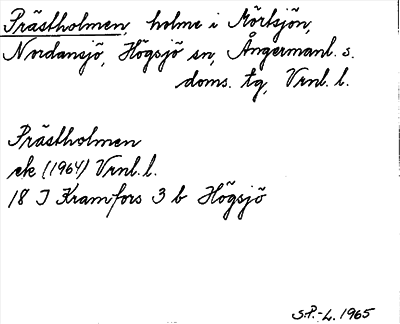 Prästholmen, holme i Mörtsjön,
Nordansjö, Högsjö sn, Ångermanl. s.
doms. tg, Vrnl. l.
Prästholmen
ek (1964) Vrnl. l.
18 I Kramfors 3 b Högsjö
S.P.-L. 1965